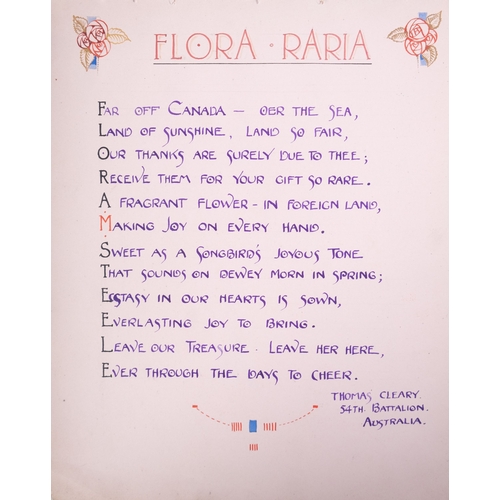 FLORA · RARIA
FAR OFF CANADA — OER THE SEA,
LAND OF SUNSHINE, LAND SO FAIR,
OUR THANKS ARE SURELY DUE TO THEE;
RECEIVE THEM FOR YOUR GIFT SO RARE.
A FRAGRANT FLOWER - IN FOREIGN LAND,
MAKING JOY ON EVERY HAND.
SWEET AS A SONGBIRD'S JOYOUS TONE
THAT SOUNDS ON DEWEY MORN IN SPRING;
ECSTASY IN OUR HEARTS IS SOWN,
EVERLASTING JOY TO BRING.
LEAVE OUR TREASURE. LEAVE HER HERE,
EVER THROUGH THE DAYS TO CHEER.
THOMAS CLEARY.
54TH. BATTALION.
AUSTRALIA.